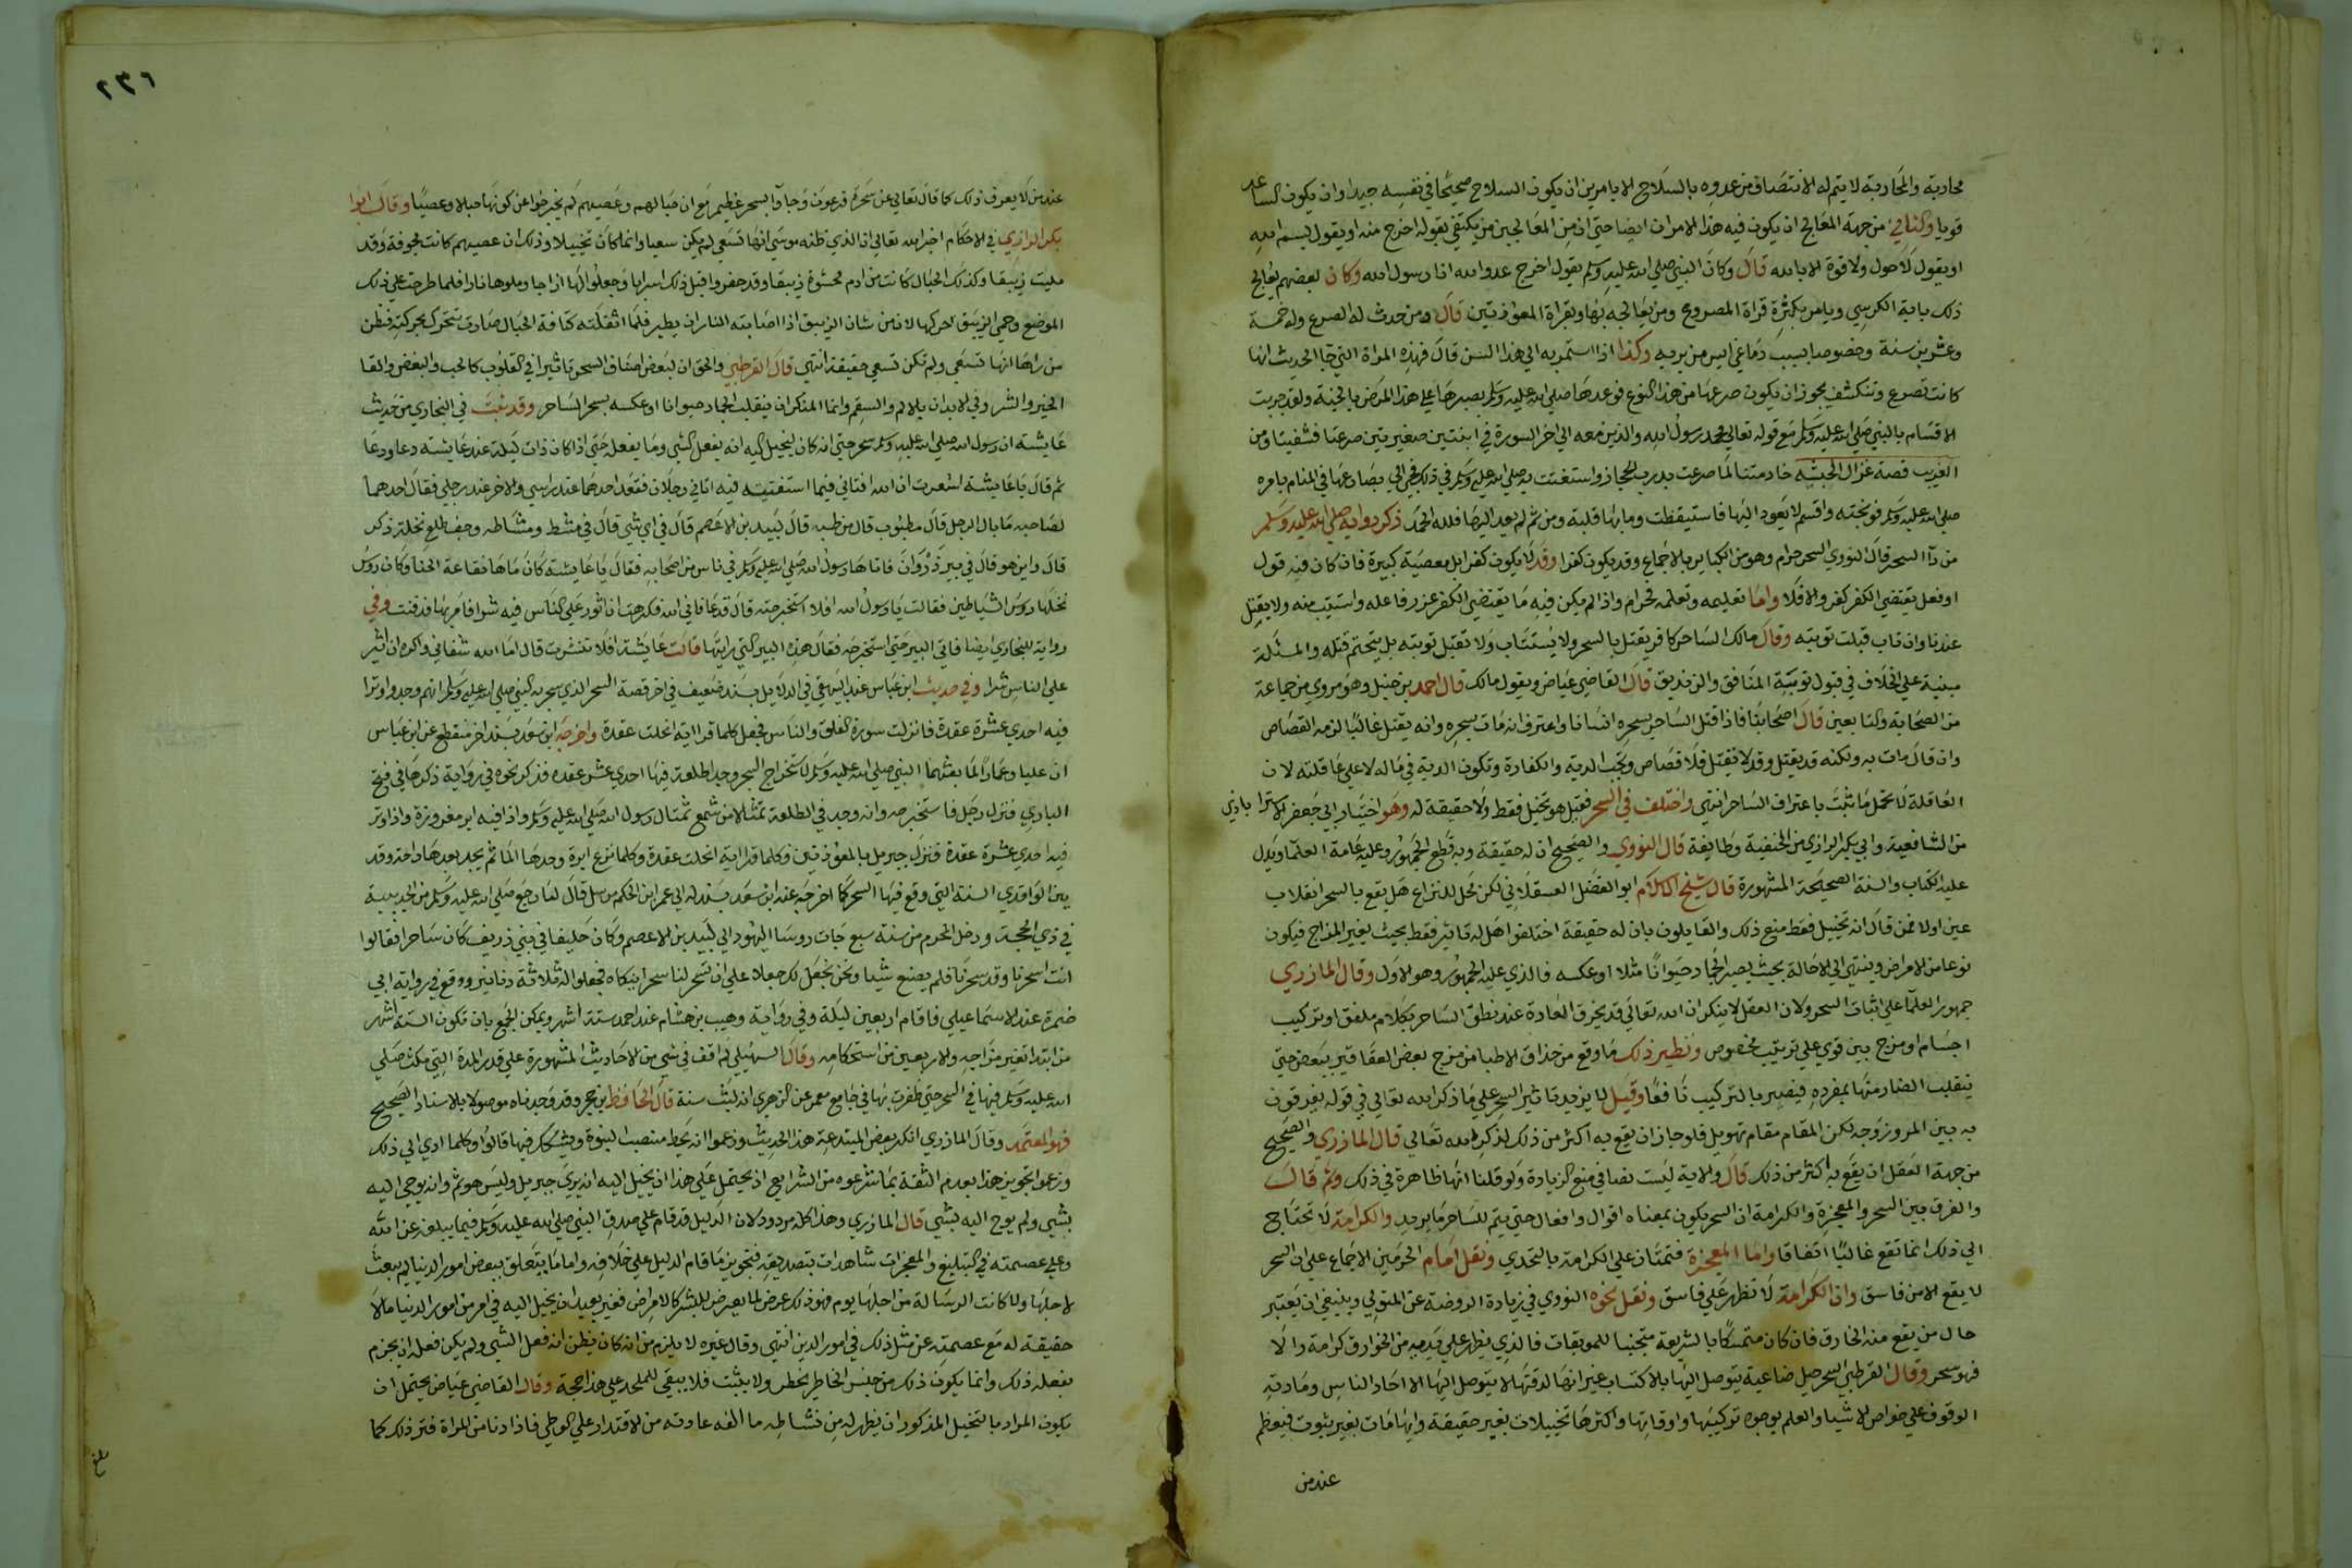 محاربة والمحاربة لا يتم له الانتصاف من عدوه بالسلاح الا بامرين ان يكون السلاح صحيحا في نفسه جيدا وان يكون الساعد
قويا والثاني من جهة المعالج ان يكون فيه هذا الامران ايضا حتى ان من المعالجين من يكتفي بقوله اخرج منه او يقول بسم الله
او يقول لا حول ولا قوة الا بالله قال وكان النبي صلى الله عليه وسلم يقول اخرج عدو الله انا رسول الله وكان بعضهم يعالج
ذلك باية الكرسي ويامر بكثرة قراة المصروع ومن يعالجه بها وبقراة المعوذتين قال ومن حدث له الصرع وله خمسة
وعشرين سنة وخصوصا بسبب دماغي ايس من بريه وكذا اذا استمر به الى هذا السن قال فهذه المراة التي جا الحديث انها
كانت تصرع وتنكشف يجوز ان يكون صرعها من هذا النوع فوعدها صلى الله عليه وسلم بصبرها على هذا المرض بالجنة ولقد جربت
الاقسام بالنبي صلى الله عليه وسلم مع قوله تعالى محمد رسول الله والذين معه الى اخر السورة في ابنتين صغيرتين صرعتا فشفيتا ومن
الغريب قصة غزال الحبشية خادمتنا لما صرعت بدرب الحجاز واستغثت به صلى الله عليه وسلم في ذلك فجي الي بصارعها في المنام بامره
صلى الله عليه وسلم فوبخته واقسم لا يعود اليها فاستيقظت وما بها قلبة ومن ثم لم يعد اليها فلله الحمد ذكر دوايه صلى الله عليه وسلم
من دآ السحر قال النووي السحر حرام وهو من الكباير بالاجماع وقد يكون كفرا وقد لا يكون كفرا بل معصية كبيرة فان كان فيه قول
او فعل يقتضي الكفر كفر والا فلا واما تعليمه وتعلمه فحرام واذا لم يكن فيه ما يقتضي الكفر عزر فاعله واستتيب منه ولا يقتل
عندنا وان تاب قبلت توبته وقال مالك الساحر كافر يقتل بالسحر ولا يستتاب ولا تقبل توبته بل يتحتم قتله والمسئلة
مبنية على الخلاف في قبول توبة المنافق والزنديق قال القاضي عياض وبقول مالك قال احمد بن حنبل وهو مروي من جماعة
من الصحابة والتابعين قال اصحابنا فاذا قتل الساحر بسحره انسانا واعترف انه مات بسحره وانه يقتل غالبا لزمه القصاص
وان قال مات به ولكنه قد يقتل وقد لا فيقتل فلا قصاص وتجب الدية والكفارة وتكون الدية في ماله لا على عاقلته لان
العاقلة لا تحمل ما ثبت باعتراف الساحر انتهى واختلف في السحر فقيل هو تخيل فقط ولا حقيقة له وهو اختيار ابي جعفر الاسترا باذي
من الشافعية وابي بكر الرازي من الحنفية وطايفة قال النووي والصحيح ان له حقيقة وبه قطع الجمهور وعليه عامة العلمآ ويدل
عليه الكتاب والسنة الصحيحة المشهورة قال شيخ الاسلام ابو الفضل العسقلاني لكن محل للنزاع هل يقع بالسحر انقلاب
عين اولا فمن قال انه تخييل فقط منع ذلك والقايلون بان له حقيقة اختلفوا هل له تاثير فقط بحيث يغير المزاج فيكون
نوعا من الامراض وينتهي الى الاحالة بحيث يصير الجماد حيوانا مثلا او عكسه فالذي عليه الجمهور وهو الاول وقال المازري
جمهور العلمآ على اثبات السحر ولان العقل لا ينكر ان الله تعالى قد يخرق العادة عند نطق الساحر بكلام ملفق او تركيب
اجسام او مزج بين قوي على ترتيب مخصوص ونظير ذلك ما وقع من حذاق الاطبا من مزج بعض العقاقير ببعض حتى
ينقلب الضار منها بمفرده فيصير بالتركيب نافعا وقيل لا يزيد تاثير السحر على ما ذكر الله تعالى في قوله يفرقون
به بين المر وزوجه لكن المقام مقام تهويل فلو جاز ان يقع به اكثر من ذلك لذكره الله تعالى قال المازري والصحيح
من جهة العقل ان يقع به اكثر من ذلك قال والاية ليست نصا في منع الزيادة ولو قلنا انها ظاهرة في ذلك وثم قال
والفرق بين السحر والمعجزة والكرامة ان السحر يكون بمعناه اقوال وافعال حتى يتم للساحر ما يريد والكرامة لا تحتاج
الى ذلك انما تقع غالبا اتفاقا واما المعجزة فتمتاز على الكرامة بالتحدي ونقل امام الحرمين الاجماع على ان السحر
لا يقع الا من فاسق وان الكرامة لا تظهر على فاسق ونقل نحوه النووي في زيادة الروضة عن المتولي وينبغي ان يعتبر
حال من يقع منه الخارق فان كان متمسكا بالشريعة متجنبا للموبقات فالذي يظهر على يديه من الخوارق كرامة والا
فهو سحر وقال القرطبي السحر حيل صناعية يتوصل اليها بالاكتساب غير انها لدقتها لا يتوصل اليها الا احاد الناس ومادته
الوقوف على خواص الاشيا والعلم بوجوه تركيبها واوقاتها واكثرها تخييلات بغير حقيقة وايهامات بغير ثبوت فيعظم
عند من
٢٣٦
عند من لا يعرف ذلك كما قال تعالى عن سحرة فرعون وجاوا بسحر عظيم مع ان حبالهم وعصيهم لم يخرجوا عن كونها حبالا وعصيا وقال ابوا
بكر الرازي في الاحكام اخبر الله تعالى ان الذي ظنه موسى انها تسعى لم يكن سعيا وانما كان تخييلا وذلك ان عصيهم كانت مجوفة وقد
مليت زيبقا وكذلك الحبال كانت من ادم محشوة زيبقا وقد حفروا قبل ذلك اسرابا وجعلوا لها ازاجا وملوها نارا فلما طرحت على ذلك
الموضع وحمي الزيبق حركها لان من شان الزيبق اذا اصابته النار ان يطير فلما اثقلته كثافة الحبال صارت تتحرك بحركته فيظن
من راها انها تسعى ولم تكن تسعى حقيقة انتهى قال القرطبي والحق ان لبعض اصناف السحر تاثيرا في القلوب كالحب والبغض والقا
الخير والشر وفي الابدان بالالم والسقم وانما المنكر ان ينقلب الجماد حيوانا او عكسه بسحر الساحر وقد ثبت في البخاري من حديث
عايشة ان رسول الله صلى الله عليه وسلم سحر حتى انه كان ليخيل اليه انه يفعل الشي وما يفعله حتى اذا كان ذات ليلة عند عايشة دعا ودعا
ثم قال يا عايشة اشعرت ان الله افتاني فيما استفتيته فيه اتاني رجلان فقعد احدهما عند راسي والاخر عند رجلي فقال احدهما
لصاحبه ما بال الرجل قال مطبوب قال من طبه قال لبيد بن الاعصم قال في اي شي قال في مشط ومشاطه وجف طلع نخلة ذكر
قال واين هو قال في بير ذروان فاتاها رسول الله صلى الله عليه وسلم في ناس من اصحابه فقال يا عايشة كان ماها نقاعة الحنا وكان روس
نخلها روس الشياطين فقالت يا رسول الله افلا استخرجته قال قد عافاني الله فكرهت ان اثور على الناس فيه شرا فامر بها فدفنت وفي
رواية للبخاري ايضا فاتى البير حتى استخرجه فقال هذه البير التي رايتها قالت عايشة افلا تنشرت قال اما الله شفاني واكره ان اثير
على الناس شرا وفي حديث ابن عباس عند البيهقي في الدلايل بسند ضعيف في اخر قصة السحر الذي سحر به النبي صلى الله عليه وسلم انهم وجدوا وترا
فيه احدى عشرة عقدة فانزلت سورة الفلق والناس فجعل كلما قرا اية انحلت عقدة واخرجه ابن سعد بسند اخر منقطع عن ابن عباس
ان عليا وعمارا لما بعثهما النبي صلى الله عليه وسلم لاستخراج السحر وجدا طلعة فيها احدى عشر عقدة فذكر نحوه في رواية ذكرها في فتح
الباري فنزل رجل فاستخرجه وانه وجد في الطلعة تمثالا من شمع تمثال رسول الله صلى الله عليه وسلم واذا فيه ابر مغروزة واذا وتر
فيه احدى عشرة عقدة فنزل جبريل بالمعوذتين وكلما قرا اية انحلت عقدة وكلما نزع ابرة وجد لها الما ثم يجد بعدها راحة وقد
بين الواقدي السنة التي وقع فيها السحر كما اخرجه عنه ابن سعد بسند له الى عمر ابن الحكم مرسل قال لما رجع صلى الله عليه وسلم من الحديبية
في ذي الحجة ودخل المحرم من سنة سبع جات روسا اليهود الى لبيد بن الاعصم وكان حليفا في بني زريق كان ساحرا فقالوا
انت اسحرنا وقد سحرنا فلم يصنع شيا ونحن نجعل لك جعلا على ان تسحر لنا سحرا ينكاه فجعلوا له ثلاثة دنانير ووقع في رواية ابي
ضمرة عند الاسماعيلي فاقام اربعين ليلة وفي رواية وهيب بن هشام عند احمد ستة اشهر ويمكن الجمع بان تكون الستة اشهر
من ابتدا تغير مزاجه والاربعين من استحكامه وقال السهيلي لم اقف في شي من الاحاديث المشهورة على قدر المدة التي مكث صلى
الله عليه وسلم فيها في السحر حتى ظفرت بها في جامع معمر عن الزهري انه لبث سنة قال الحافظ بن حجر وقد وجدناه موصولا بالاسناد الصحيح
فهو المعتمد وقال المازري انكر بعض المبتدعة هذا الحديث وزعموا انه يحط منصب النبوة ويشكك فيها قالوا وكلما ادى الى ذلك
وزعموا تجويز هذا يعدم الثقة بما شرعوه من الشرايع اذ يحتمل على هذا ان يخيل اليه انه يرى جبريل وليس هو ثم وانه يوحى اليه
بشي ولم يوح اليه بشي قال المازري وهذا كله مردود لان الدليل قد قام على صدق النبي صلى الله عليه وسلم فيما يبلغه عن الله
وعلى عصمته في التبليغ والمعجزات شاهدات بتصديقه فتجويز ما قام الدليل على خلافه واما ما يتعلق ببعض امور الدنيا لم يبعث
لاجلها ولا كانت الرسالة من اجلها يوم فهو ذلك عرض لما يعرض للبشر كالامراض فغير بعيد ان يخيل اليه في امر من امور الدنيا مالا
حقيقة له مع عصمته عن مثل ذلك في امور الدين انتهى وقال غيره لا يلزم من انه كان يظن انه فعل الشي ولم يكن فعله ان يجزم
بفعله ذلك وانما يكون ذلك من جنس الخاطر يخطر ولا يثبت فلا يبقى للملحد على هذا حجة وقال القاضي عياض يحتمل ان
يكون المراد بالتخيل المذكور ان يظهر له من نشاطه ما الفه عادته من الاقتدار على الوطي فاذا دنا من المراة فتر ذلك كما